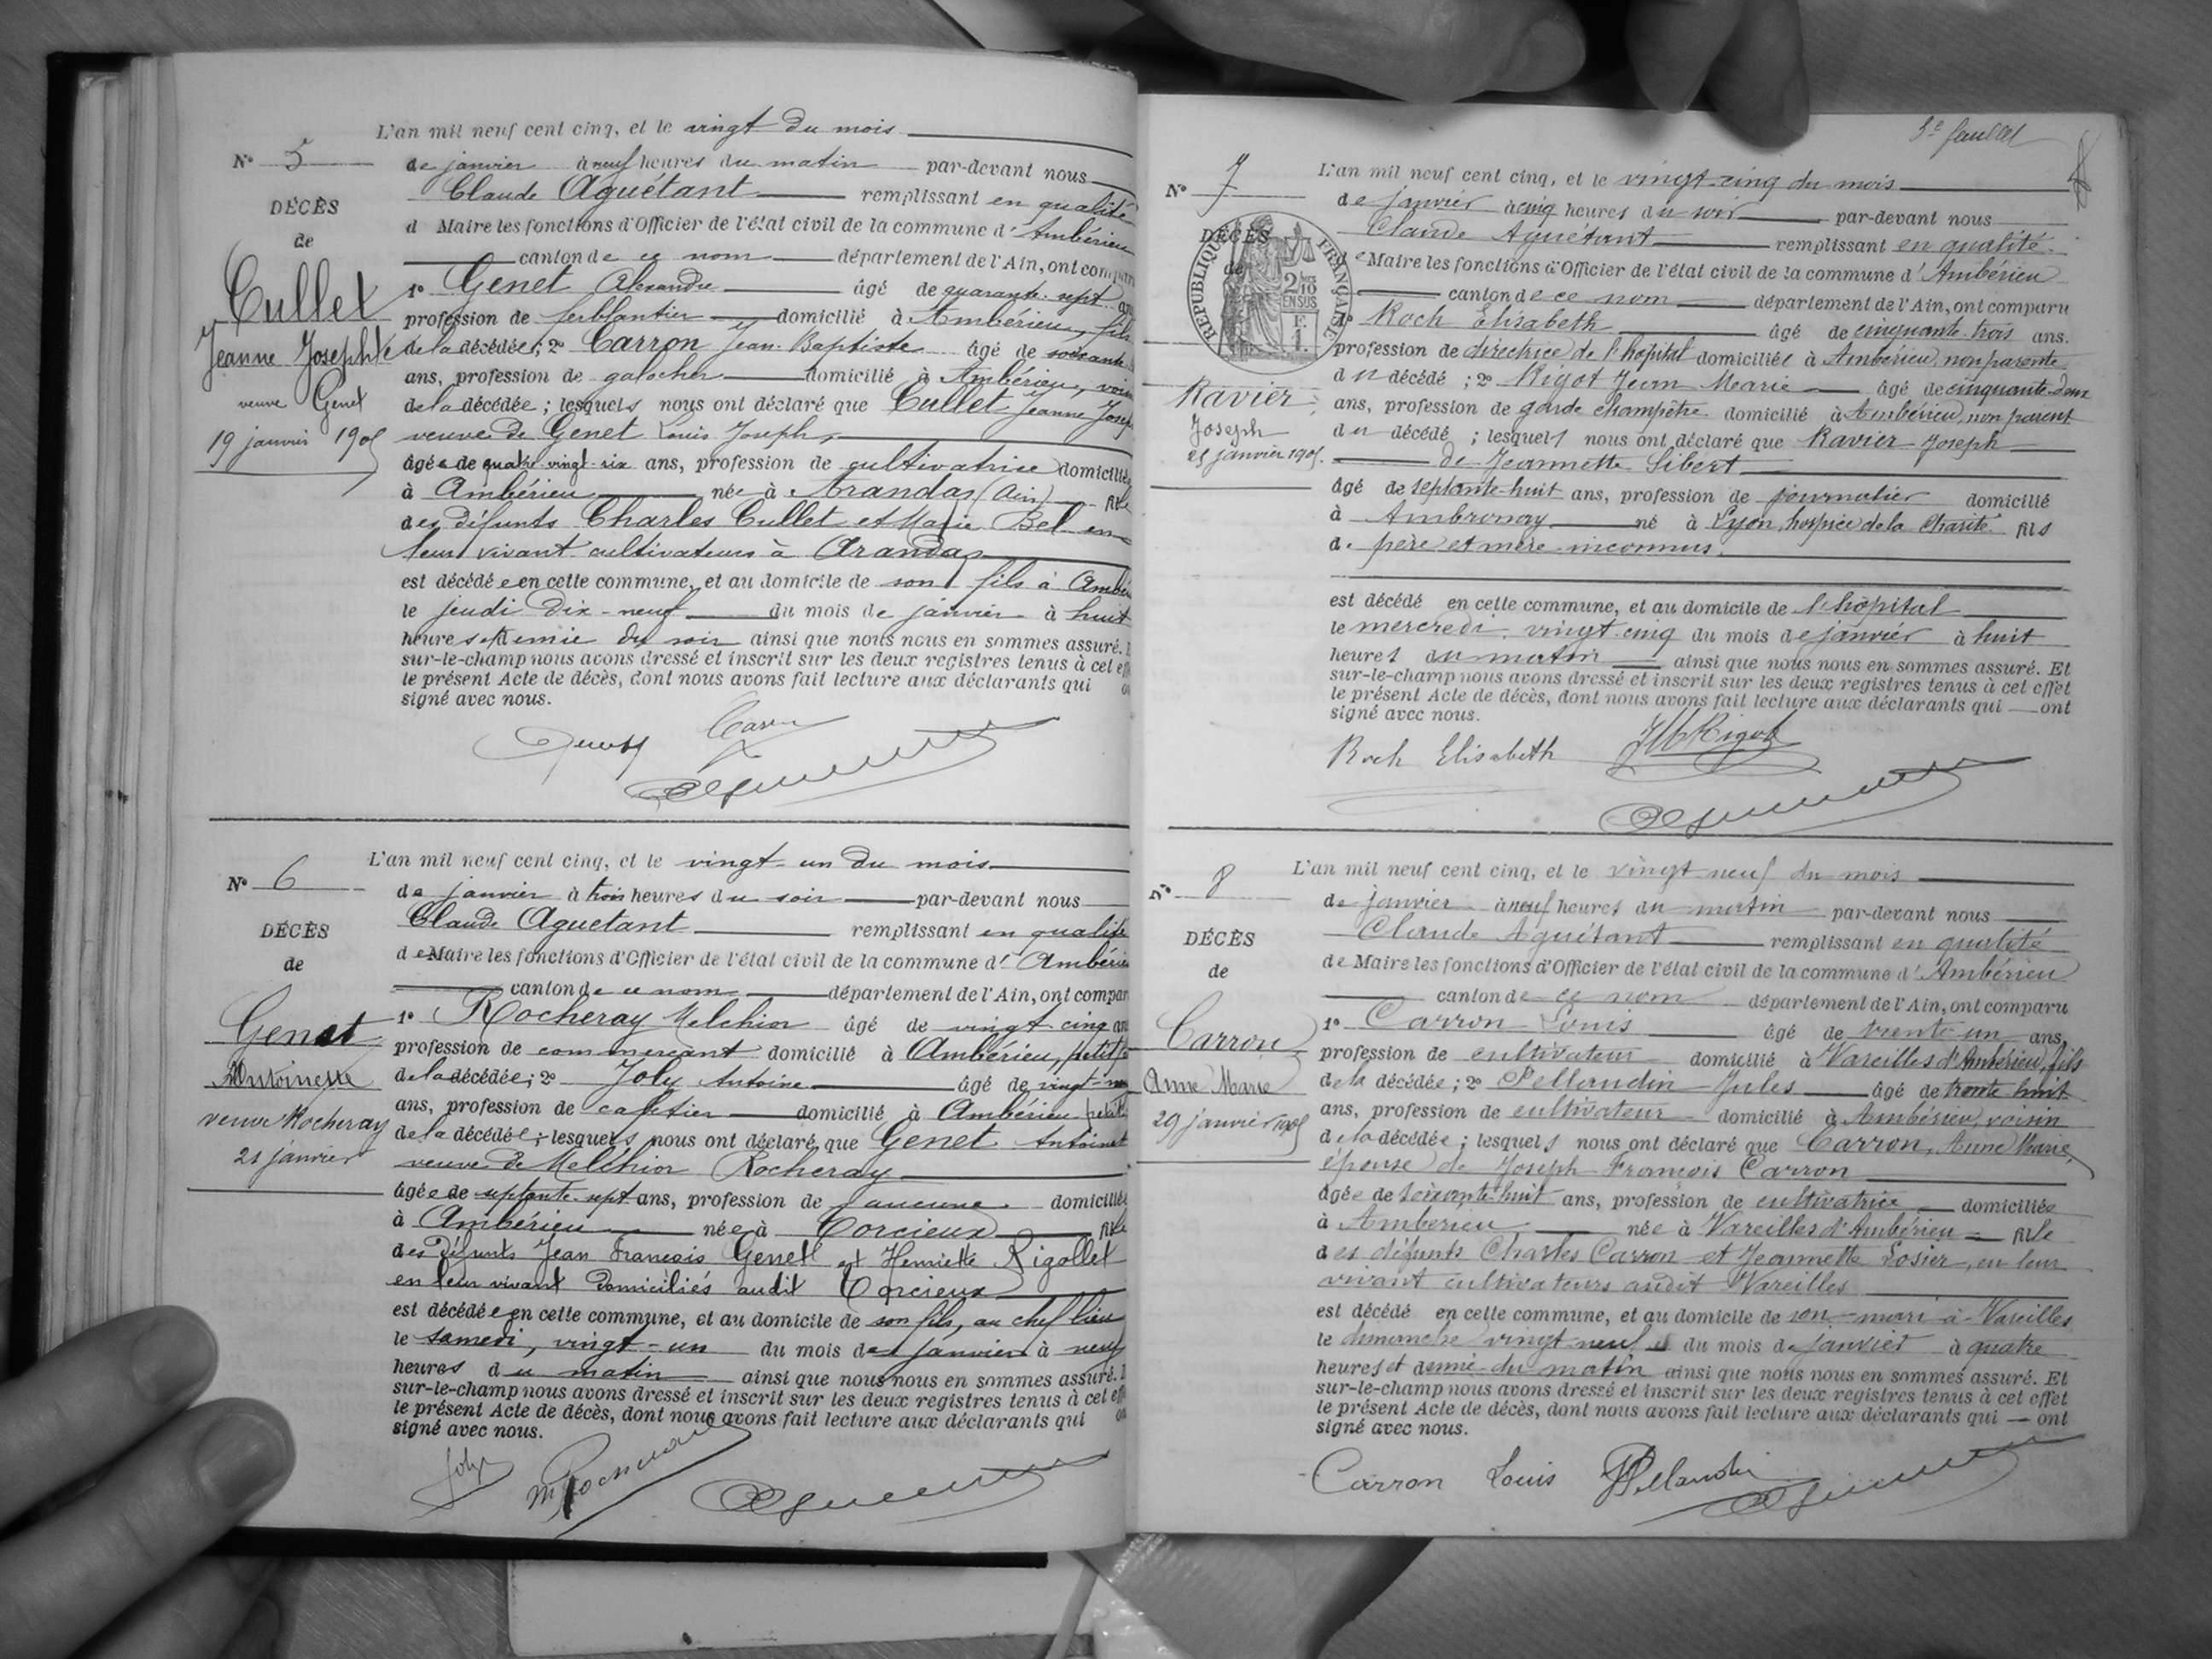 L'an mil neuf cent cinq, et le vingt du mois
N° 5
de janvier à neuf heures du matin par-devant nous
Claude Aguétant remplissant en qualité
DÉCÈS
d Maire les fonctions d'Officier de l'état civil de la commune d'Ambérieu
de
canton de ce nom département de l'Ain, ont compar
Cullet
1° Genet Alexandre âgé de quarante-sept an
profession de ferblantier domicilié à Ambérieu, fils
Jeanne Josephte
de la décédée; 2° Carron Jean-Baptiste âgé de soixante
ans, profession de galocher domicilié à Ambérieu, voisin
veuve Genet
de la décédée; lesquels nous ont déclaré que Cullet Jeanne Josep
19 janvier 1905
veuve de Genet Louis Joseph,
âgée de quatre-vingt-six ans, profession de cultivatrice domiciliée
à Ambérieu née à Arandas (Ain) fille
des défunts Charles Cullet et Marie Bel en
leur vivant cultivateurs à Arandas
est décédée en cette commune, et au domicile de son fils à Ambé
le jeudi dix-neuf du mois de janvier à huit
heures et demie du soir ainsi que nous nous en sommes assuré.
sur-le-champ nous avons dressé et inscrit sur les deux registres tenus à cet eff
le présent Acte de décès, dont nous avons fait lecture aux déclarants qui on
signé avec nous.
L'an mil neuf cent cinq, et le vingt-un du mois
N° 6
de janvier à trois heures du soir par-devant nous
Claude Aguetant remplissant en qualité
DÉCÈS
de Maire les fonctions d'Officier de l'état civil de la commune d'Ambérieu
de
canton de ce nom département de l'Ain, ont compar
Genet
1° Rocheray Melchior âgé de vingt-cinq an
profession de commerçant domicilié à Ambérieu, petit fils
Antoinette
de la décédée; 2° Joly Antoine âgé de vingt-
ans, profession de cafetier domicilié à Ambérieu petit
veuve Rocheray
de la décédée; lesquels nous ont déclaré que Genet Antoinet
21 janvier
veuve de Melchior Rocheray
âgée de septante-sept ans, profession de aucune domiciliée
à Ambérieu née à Torcieux fille
des défunts Jean François Genet et Henriette Rigollet
en leur vivant domiciliés audit Torcieux
est décédée en cette commune, et au domicile de son fils, au chef lieu
le samedi, vingt-un du mois de janvier à neuf
heures du matin ainsi que nous nous en sommes assuré.
sur-le-champ nous avons dressé et inscrit sur les deux registres tenus à cet eff
le présent Acte de décès, dont nous avons fait lecture aux déclarants qui on
signé avec nous.
Joly
3e feuillet
L'an mil neuf cent cinq, et le vingt-cinq du mois
N° 7
de janvier à cinq heures du soir par-devant nous
Claude Aguétant remplissant en qualité
DÉCÈS
de
RÉPUBLIQUE FRANÇAISE
2/10 EN SUS
de Maire les fonctions d'Officier de l'état civil de la commune d'Ambérieu
canton de ce nom département de l'Ain, ont comparu
1° Roch Elisabeth âgé de cinquante-trois ans.
profession de directrice de l'hôpital domiciliée à Ambérieu, non parente
Ravier
du décédé; 2° Rigot Jean Marie âgé de cinquante-deux
ans, profession de garde champêtre domicilié à Ambérieu, non parent
Joseph
du décédé; lesquels nous ont déclaré que Ravier Joseph
25 janvier 1905.
de Jeannette Sibert
âgé de septante-huit ans, profession de journalier domicilié
à Ambronay né à Lyon, hospice de la Charité fils
de père et mère inconnus.
est décédé en cette commune, et au domicile de l'hôpital
le mercredi vingt-cinq du mois de janvier à huit
heures du matin ainsi que nous nous en sommes assuré. Et
sur-le-champ nous avons dressé et inscrit sur les deux registres tenus à cet effet
le présent Acte de décès, dont nous avons fait lecture aux déclarants qui ont
signé avec nous.
Roch Elisabeth JM Rigot
L'an mil neuf cent cinq, et le vingt-neuf du mois
N° 8
de janvier à neuf heures du matin par-devant nous
Claude Aguétant remplissant en qualité
DÉCÈS
de Maire les fonctions d'Officier de l'état civil de la commune d'Ambérieu
de
canton de ce nom département de l'Ain, ont comparu
Carron
1° Carron Louis âgé de trente-un ans,
profession de cultivateur domicilié à Vareilles d'Ambérieu, fils
Anne Marie
de la décédée; 2° Pellaudin Jules âgé de trente-huit
29 janvier 1905
ans, profession de cultivateur domicilié à Ambérieu, voisin
de la décédée; lesquels nous ont déclaré que Carron, Anne Marie,
épouse de Joseph François Carron
âgée de soixante-huit ans, profession de cultivatrice domiciliée
à Ambérieu née à Vareilles d'Ambérieu fille
des défunts Charles Carron et Jeannette Losier, en leur
vivant cultivateurs audit Vareilles
est décédé en cette commune, et au domicile de son mari à Vareilles
le dimanche vingt-neuf du mois de janvier à quatre
heures et demie du matin ainsi que nous nous en sommes assuré. Et
sur-le-champ nous avons dressé et inscrit sur les deux registres tenus à cet effet
le présent Acte de décès, dont nous avons fait lecture aux déclarants qui ont
signé avec nous.
Carron Louis Pellaudin